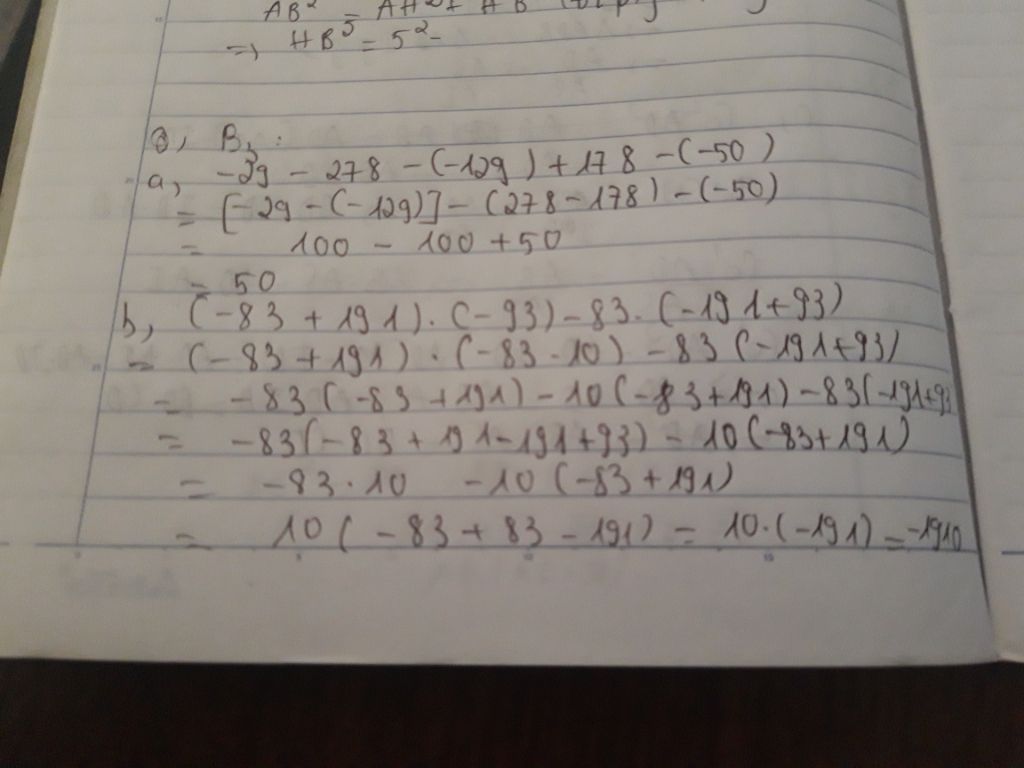 AB² = AH² + HB
=> HB⁵ = 5² -
B, :
a, -29 - 278 - (-129) + 178 - (-50)
= [-29 - (-129)] - (278 - 178) - (-50)
= 100 - 100 + 50
= 50
b, (-83 + 191). (-93) - 83. (-191+93)
= (-83 + 191) . (-83 - 10) - 83 (-191+93)
= -83 (-83 + 191) - 10 (-83 + 191) - 83 (-191+93
= -83 (-83 + 191 - 191 + 93) - 10 (-83 + 191)
= -83 . 10 - 10 (-83 + 191)
= 10 ( - 83 + 83 - 191) = 10. (-191) = -1910